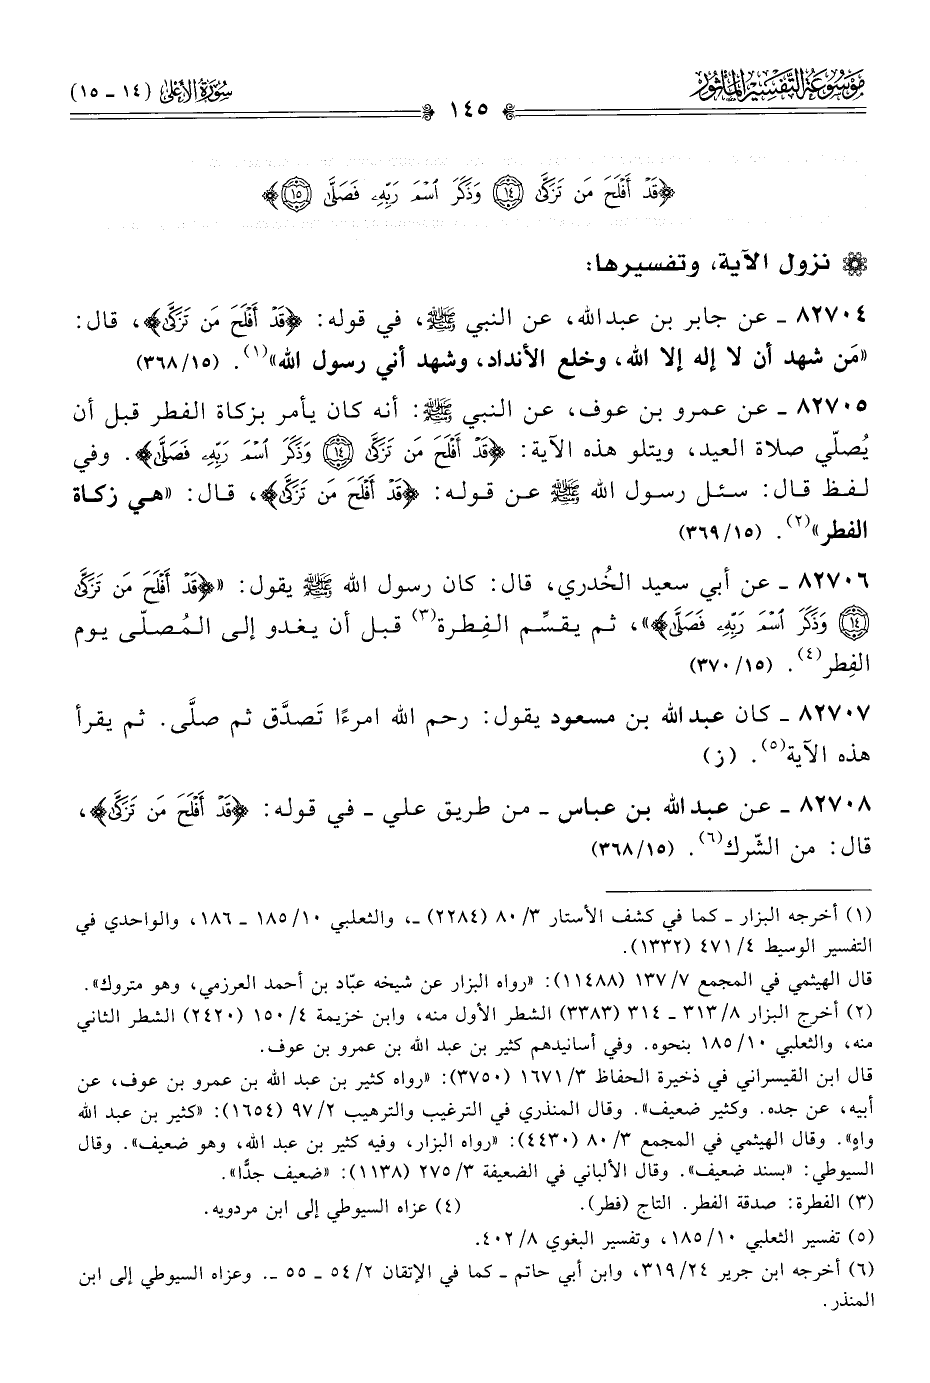 موسوعة التفسير المأثور
سورة الأعلى (١٤ - ١٥)
١٤٥
﴿قَدْ أَفْلَحَ مَن تَزَكَّىٰ ⑭ وَذَكَرَ ٱسْمَ رَبِّهِۦ فَصَلَّىٰ ⑮﴾
نزول الآية، وتفسيرها:
٨٢٧٠٤ - عن جابر بن عبدالله، عن النبي ﷺ، في قوله: ﴿قَدْ أَفْلَحَ مَن تَزَكَّىٰ﴾، قال:
«مَن شهد أن لا إله إلا الله، وخلع الأنداد، وشهد أني رسول الله»(١). (٣٦٨/١٥)
٨٢٧٠٥ - عن عمرو بن عوف، عن النبي ﷺ: أنه كان يأمر بزكاة الفطر قبل أن
يُصلّي صلاة العيد، ويتلو هذه الآية: ﴿قَدْ أَفْلَحَ مَن تَزَكَّىٰ ⑭ وَذَكَرَ ٱسْمَ رَبِّهِۦ فَصَلَّىٰ﴾. وفي
لفظ قال: سئل رسول الله ﷺ عن قوله: ﴿قَدْ أَفْلَحَ مَن تَزَكَّىٰ﴾، قال: «هي زكاة
الفطر»(٢). (٣٦٩/١٥)
٨٢٧٠٦ - عن أبي سعيد الخُدري، قال: كان رسول الله ﷺ يقول: «﴿قَدْ أَفْلَحَ مَن تَزَكَّىٰ
⑭ وَذَكَرَ ٱسْمَ رَبِّهِۦ فَصَلَّىٰ﴾»، ثم يقسِّم الفِطرة(٣) قبل أن يغدو إلى المُصلّى يوم
الفِطر(٤). (٣٧٠/١٥)
٨٢٧٠٧ - كان عبدالله بن مسعود يقول: رحم الله امرءًا تَصدَّق ثم صلَّى. ثم يقرأ
هذه الآية(٥). (ز)
٨٢٧٠٨ - عن عبدالله بن عباس - من طريق علي - في قوله: ﴿قَدْ أَفْلَحَ مَن تَزَكَّىٰ﴾،
قال: من الشّرك(٦). (٣٦٨/١٥)
(١) أخرجه البزار - كما في كشف الأستار ٨٠/٣ (٢٢٨٤) -، والثعلبي ١٨٥/١٠ - ١٨٦، والواحدي في
التفسير الوسيط ٤٧١/٤ (١٣٣٢).
قال الهيثمي في المجمع ١٣٧/٧ (١١٤٨٨): «رواه البزار عن شيخه عبّاد بن أحمد العرزمي، وهو متروك».
(٢) أخرج البزار ٣١٣/٨ - ٣١٤ (٣٣٨٣) الشطر الأول منه، وابن خزيمة ١٥٠/٤ (٢٤٢٠) الشطر الثاني
منه، والثعلبي ١٨٥/١٠ بنحوه. وفي أسانيدهم كثير بن عبد الله بن عمرو بن عوف.
قال ابن القيسراني في ذخيرة الحفاظ ١٦٧١/٣ (٣٧٥٠): «رواه كثير بن عبد الله بن عمرو بن عوف، عن
أبيه، عن جده. وكثير ضعيف». وقال المنذري في الترغيب والترهيب ٩٧/٢ (١٦٥٤): «كثير بن عبد الله
واهٍ». وقال الهيثمي في المجمع ٨٠/٣ (٤٤٣٠): «رواه البزار، وفيه كثير بن عبد الله، وهو ضعيف». وقال
السيوطي: «بسند ضعيف». وقال الألباني في الضعيفة ٢٧٥/٣ (١١٣٨): «ضعيف جدًّا».
(٣) الفطرة: صدقة الفطر. التاج (فطر). (٤) عزاه السيوطي إلى ابن مردويه.
(٥) تفسير الثعلبي ١٨٥/١٠، وتفسير البغوي ٤٠٢/٨.
(٦) أخرجه ابن جرير ٣١٩/٢٤، وابن أبي حاتم - كما في الإتقان ٥٤/٢ - ٥٥ -. وعزاه السيوطي إلى ابن
المنذر.